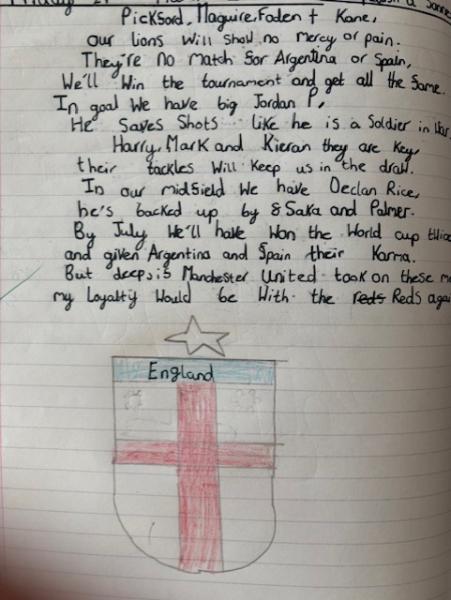 Pickford, Maguire, Foden + Kane,
our lions will show no mercy or pain.
They're no match for Argentina or Spain,
We'll win the tournament and get all the fame.
In goal we have big Jordan P,
He saves shots like he is a soldier in
Harry, Mark and Kieran they are key,
their tackles will keep us in the draw.
In our midfield we have Declan Rice,
he's backed up by & Saka and Palmer.
By July we'll have won the world cup
and given Argentina and Spain their Karma.
But deep, is Manchester United took on these
my loyalty would be with the reds Reds
England